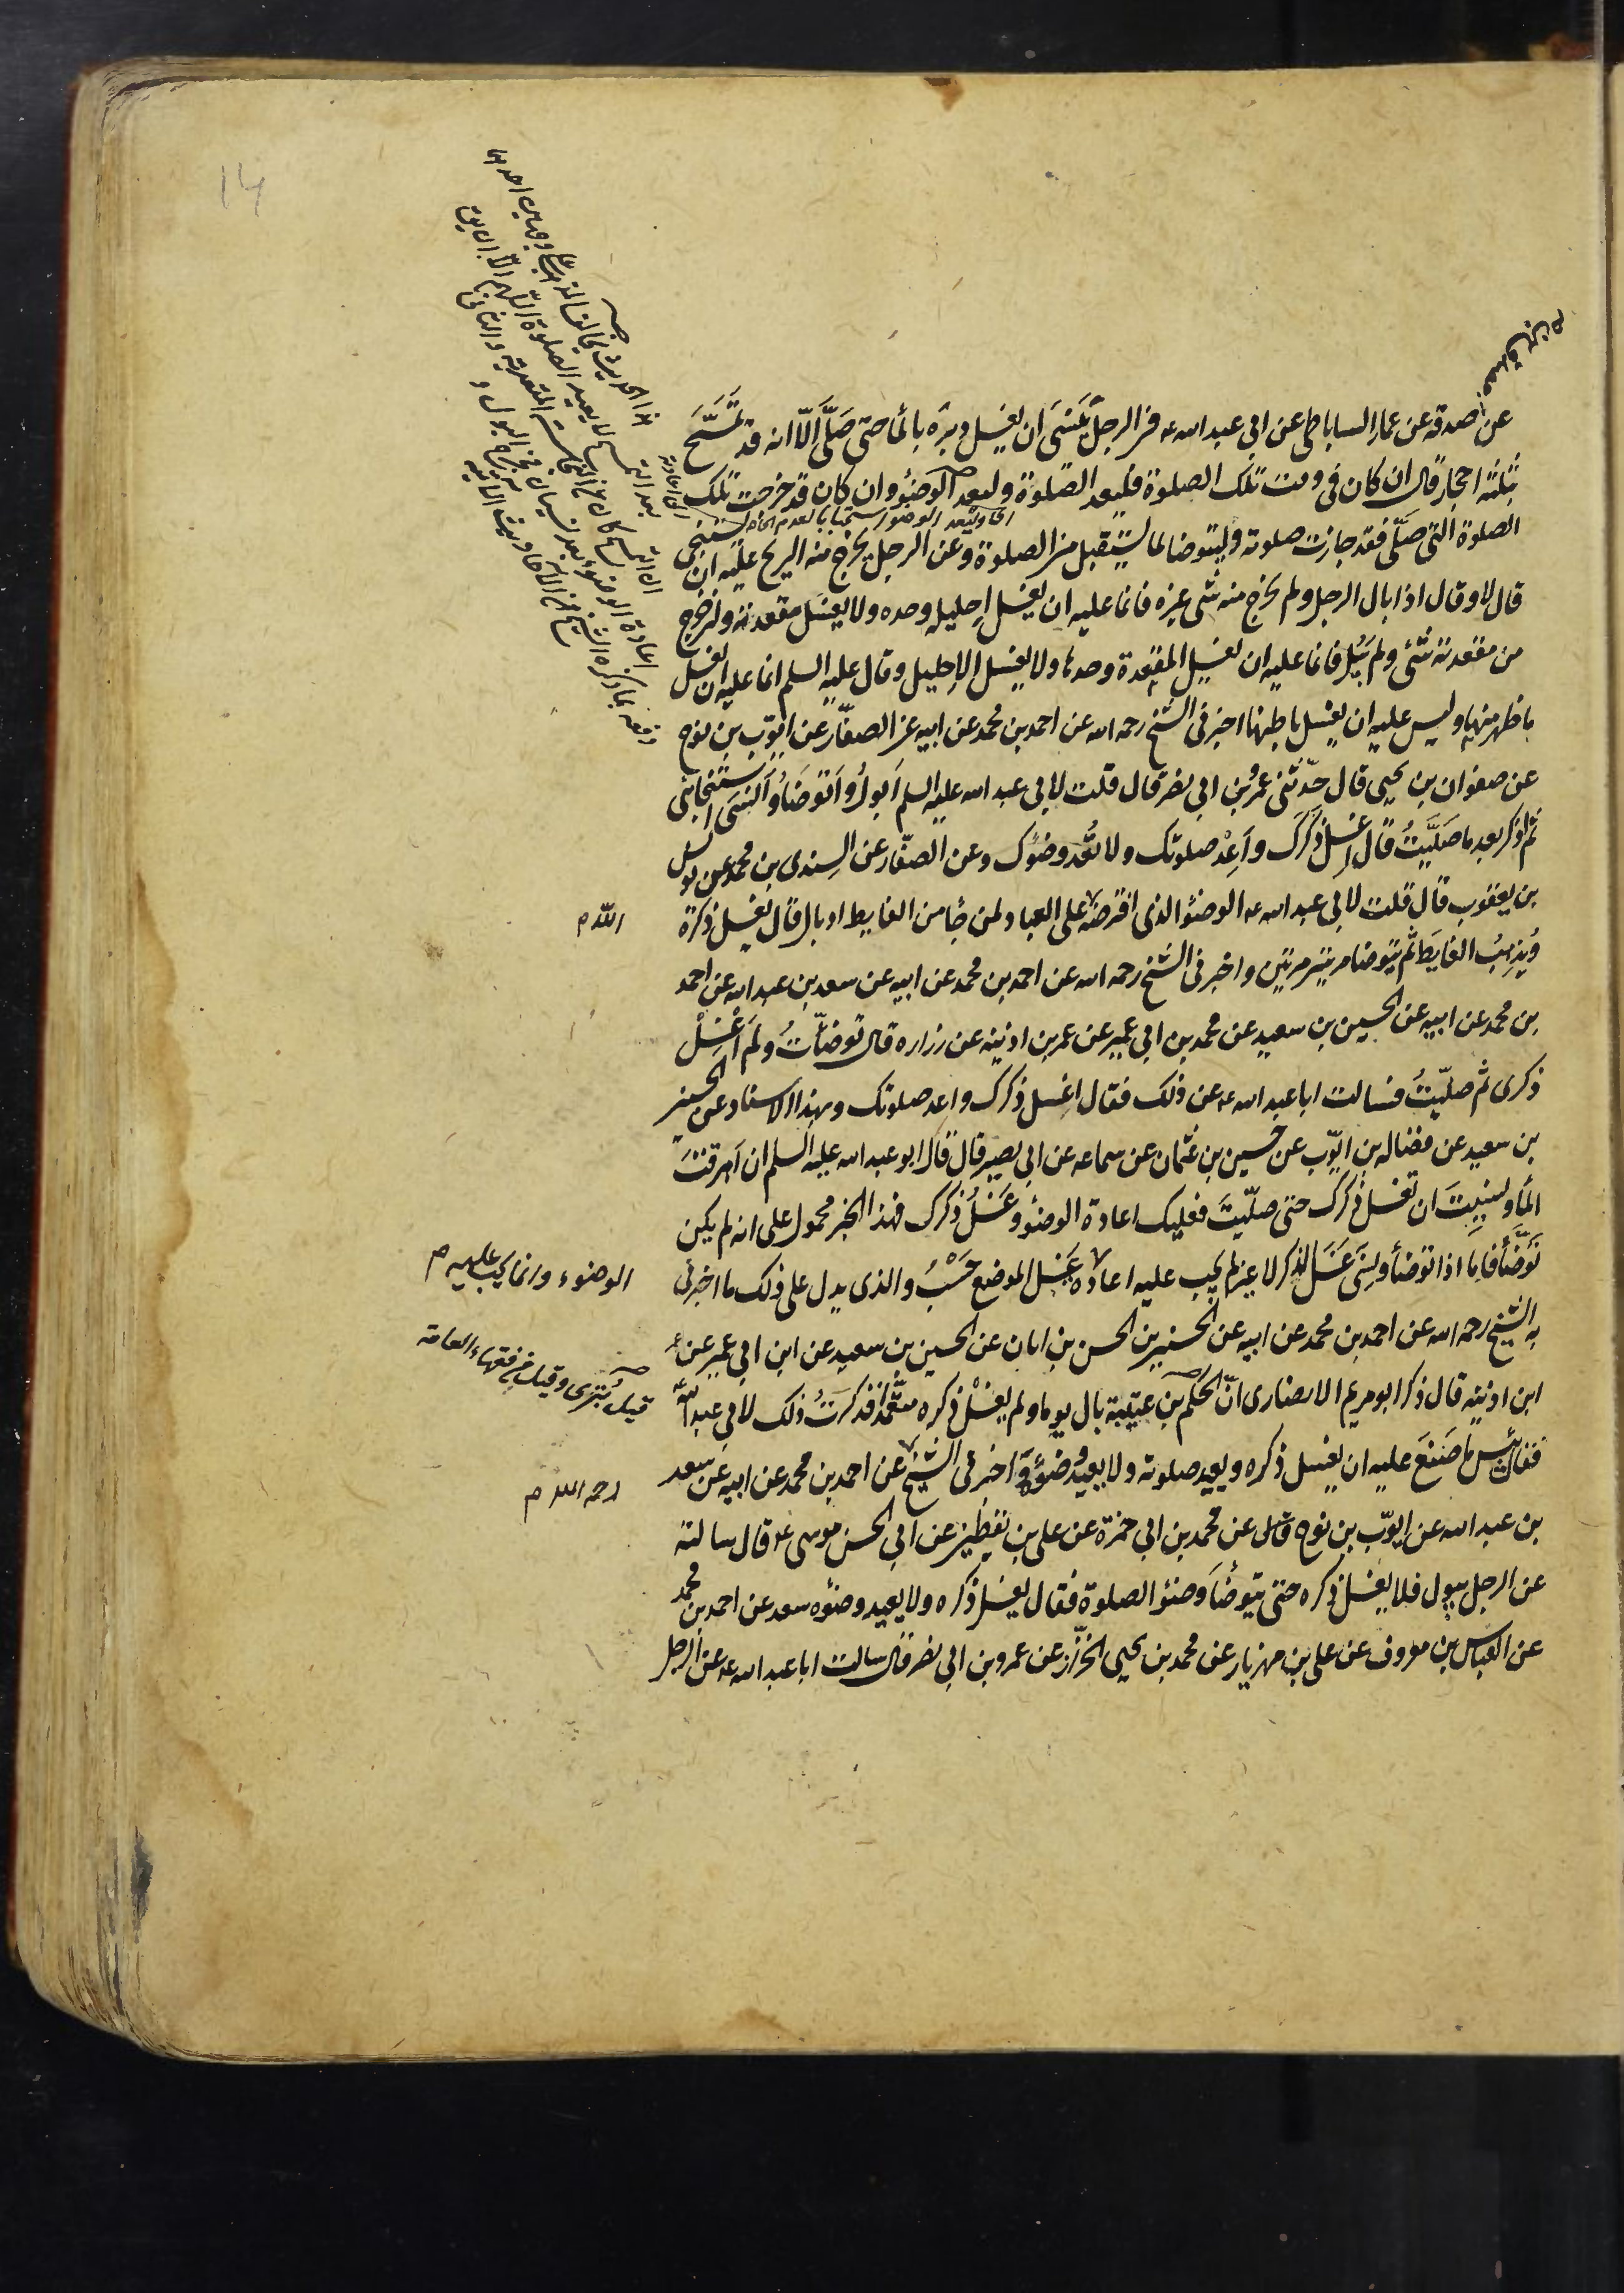 عن صدقه عن عمار الساباطى عن ابى عبد الله عه فى الرجل يَنسَىَ ان يغسل دبره بالمأ حتى صَلَّى الّا انه قد تَمَسَّحَ
بثلثه احجار قال ان كان فى وقت تلك الصلوة فليعد الصلوة وليعد الوضؤ وان كان قد خرجت تلك
الصلوة التى صَلَّى فقد جازت صلوته وليتوضا لما يستقبل من الصلوة وعن الرجل يخرج منه الريح عليه ان يستنجى
قال لا وقال اذا بال الرجل ولم يخرج منه شى غيره فانما عليه ان يغسل اِحليله وحده ولا يغسل مقعدته وان خرج
من مقعدته شئ ولم يَبُل فانما عليه ان يغسل المقعدة وحدها ولا يغسل الاِحليل وقال عليه السلم انما عليه ان يغسل
ما ظهر منها وليس عليه ان يغسل باطنها اخبرنى الشيخ رحمه الله عن احمد بن محمد عن ابيه عن الصفّار عن ايّوب بن نوح
عن صفوان بن يحيى قال حدّثنى عمرُو بن ابى نصر قال قلت لابى عبد الله عليه السلم اَبولُ واَتوضَأُ واَنسَى استنجائى
ثم اذكر بعد ما صَلَّيتُ قال اغسل ذكَرَك واَعِدْ صلوتك ولا تُعد وضوك وعن الصفّار عن السِندى بن محمد عن يونس
بن يعقوب قال قلت لابى عبد الله عه الوضؤ الذى افترضه على العباد لمن جأ من الغايط او بال قال يغسل ذكره
الله م
ويُذهِبُ الغايَط ثم يتوضا مرتين مرتين واخبرنى الشيخ رحمه الله عن احمد بن محمد عن ابيه عن سعد بن عبد الله عن احمد
بن محمد عن ابيه عن الحسين بن سعيد عن محمد بن ابى عمير عن عمر بن اذينه عن زراره قال توضأّتُ ولَم اَغْسِلْ
ذكرى ثم صلّيتُ فسالت ابا عبد الله عه عن ذلك فقال اغسل ذكرك واعد صلوتك وبهذا الاسناد عن الحسين
بن سعيد عن فضاله بن ايّوب عن حسين بن عثمان عن سماعه عن ابى بصير قال قال ابو عبد الله عليه السلم ان اَهرقتَ
المأ ونسيتَ ان تغسل ذكرك حتى صلّيتَ فعليك اعادة الوضؤ وغَسلُ ذكرك فهذا الخبر محمول على انه لم يكن
تَوَضَّأ فاما اذا توضأ ونسَى غَسلَ الذكر لا غير لم يجب عليه اعادة غَسل الموضع حَسْبُ والذى يدل على ذلك ما اخبرنى
الوضوء وانما يجب عليه م
به الشيخ رحمه الله عن احمد بن محمد عن ابيه عن الحسين بن الحسن بن ابان عن الحسين بن سعيد عن ابن ابى عمير عن
ابن اذينه قال ذكر ابو مريم الانصارى انّ الحكم بن عتيبة بال يوما ولم يغسْل ذكره متعَمّدا فذكرتُ ذلك لابى عبد الله
قيل بُترى وقيل من فقهاء العامة
فقال بئس ما صَنَعَ عليه ان يغسل ذكره ويعيد صلوته ولا يعيد وُضوءَه اخبرنى الشيخ عن احمد بن محمد عن ابيه عن سعد
رحمه الله م
بن عبد الله عن ايوّب بن نوح عن محمد بن ابى حمزة عن على بن يقطين عن ابى الحسن موسى ع قال سالته
عن الرجل يبول فلا يغسل ذكره حتى يتوضأ وضؤ الصلوة فقال يغسل ذكره ولا يعيد وضوءه سعد عن احمد بن محمد
عن العباس بن معروف عن على بن مهزيار عن محمد بن يحيى الخزّاز عن عمرو بن ابى نصر قال سالت ابا عبد الله عه عن الرجل